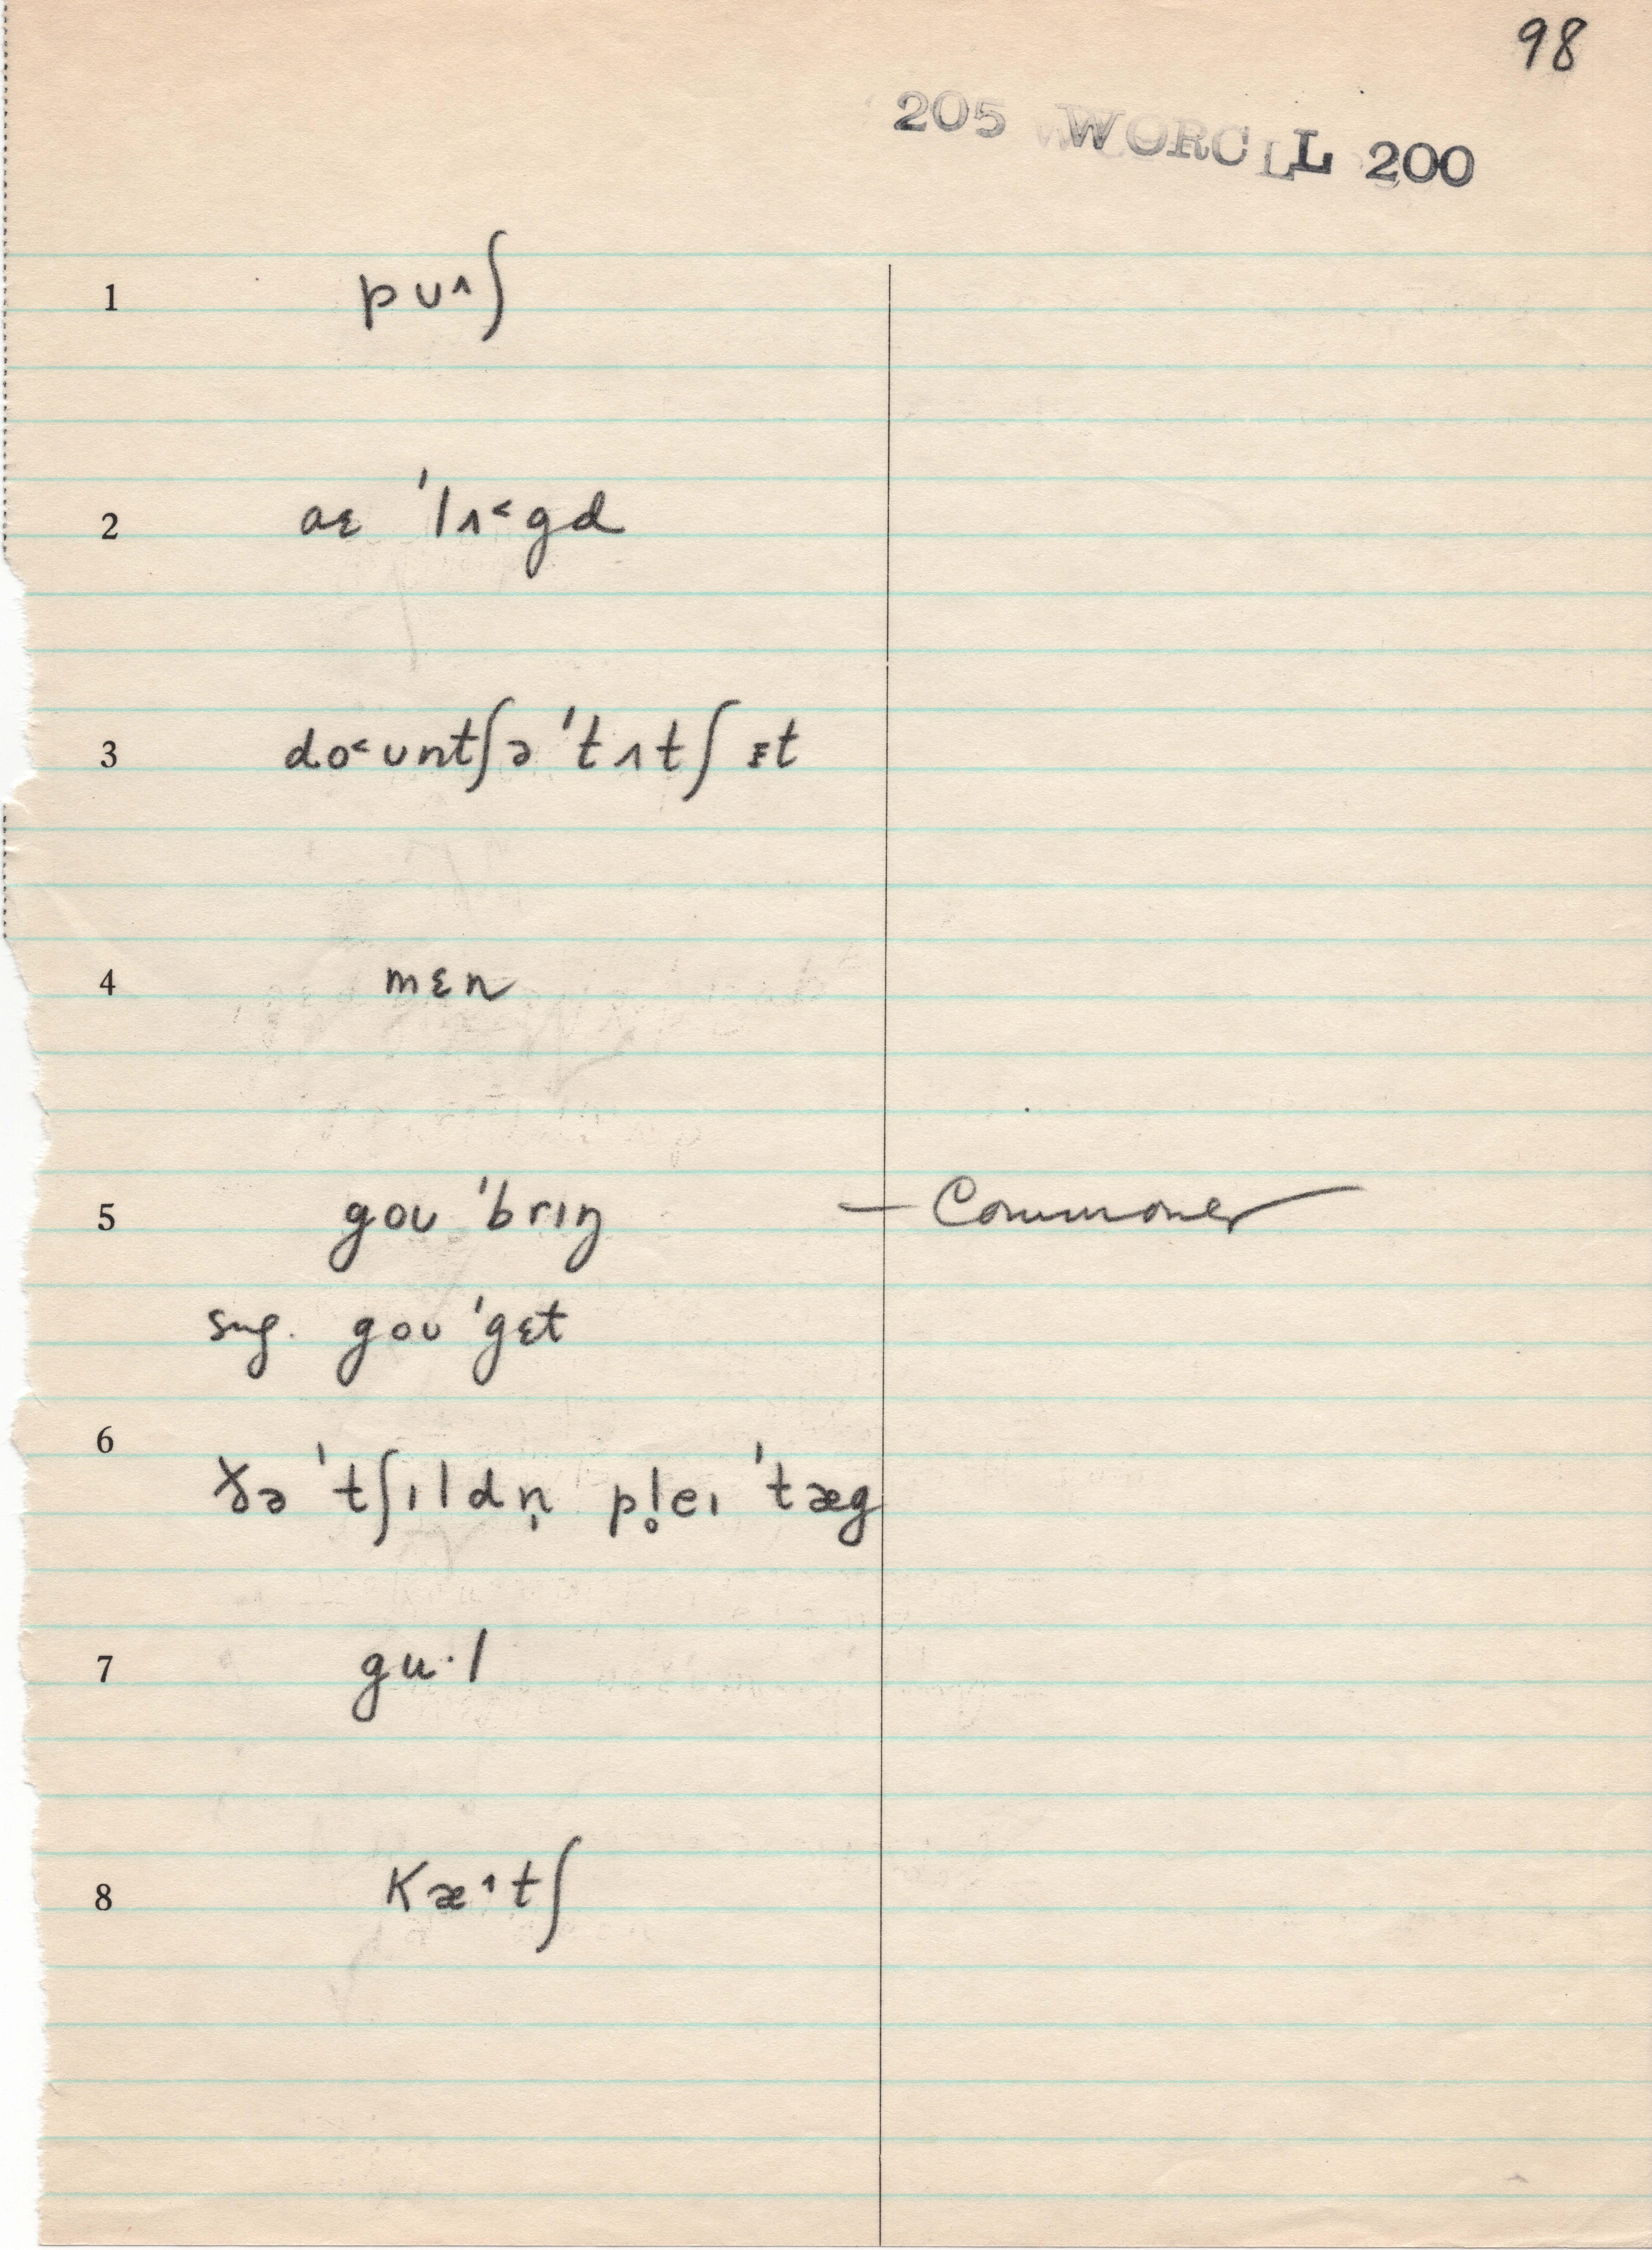 98
205 WORCLL 200
1 pʊ^ʃ
2 aɛ 'lʌ˂gd
3 do˂ʊntʃə 'tʌtʃ ɪt
4 mɛn
5 goʊ 'brɪŋ — Commoner
sug. goʊ 'gɛt
6
ðə 'tʃɪldn̩ pl̥eɪ 'tæg
7 gu·l
8 kæ^tʃ